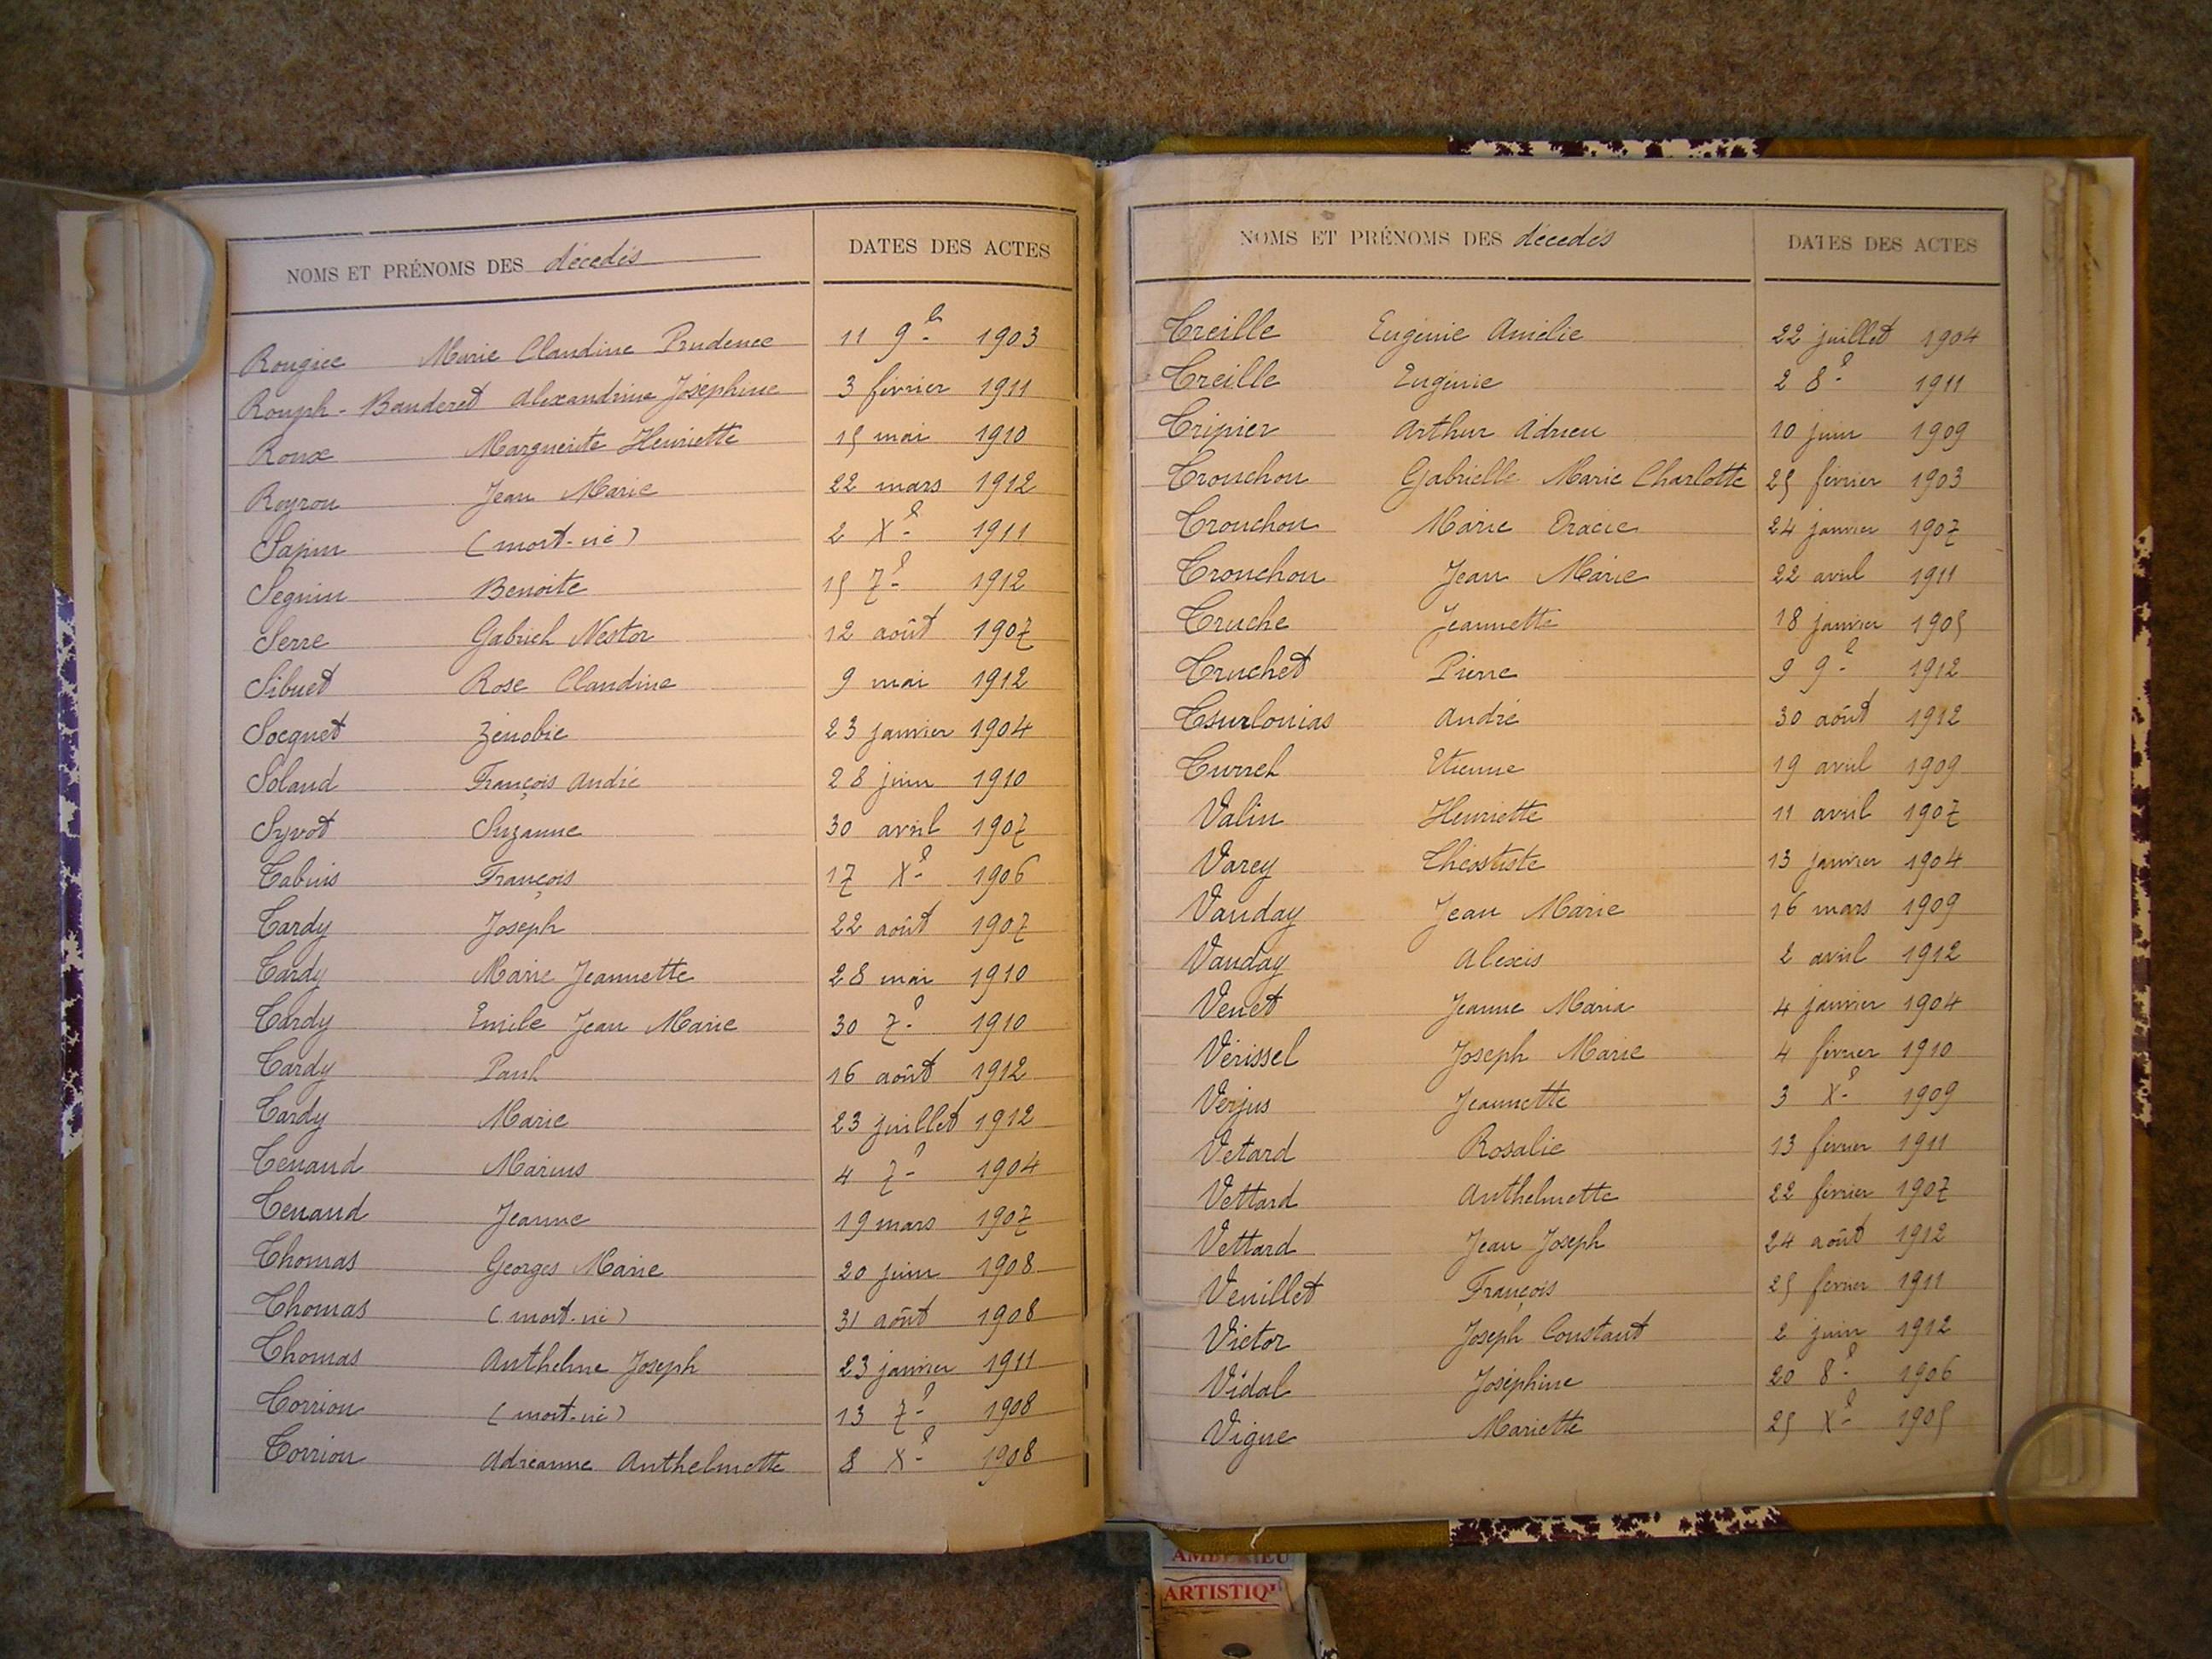 NOMS ET PRÉNOMS DES décédés DATES DES ACTES
Rougier Marie Claudine Prudence 11 9bre 1903
Rouph-Banderet Alexandrine Joséphine 3 février 1911
Roux Marguerite Henriette 15 mai 1910
Royron Jean Marie 22 mars 1912
Sapin (mort-né) 2 Xe 1911
Seguin Benoite 15 7e 1912
Serre Gabriel Nestor 12 août 1907
Sibuet Rose Claudine 9 mai 1912
Socquet Zénobie 23 janvier 1904
Soland François André 28 juin 1910
Syvot Suzanne 30 avril 1907
Tabuis François 17 Xe 1906
Tardy Joseph 22 août 1907
Tardy Marie Jeannette 28 mai 1910
Tardy Emile Jean Marie 30 7e 1910
Tardy Paul 16 août 1912
Tardy Marie 23 juillet 1912
Tenand Marius 4 7e 1904
Tenand Jeanne 19 mars 1907
Thomas Georges Marie 20 juin 1908
Thomas (mort-né) 31 août 1908
Thomas Anthelme Joseph 23 janvier 1911
Torrion (mort-né) 13 7e 1908
Torrion Adreanne Anthelmette 8 Xe 1908
NOMS ET PRÉNOMS DES décédés DATES DES ACTES
Treille Eugénie Amélie 22 juillet 1904
Treille Eugénie 2 8e 1911
Tripier Arthur Adrien 10 juin 1909
Trouchon Gabrielle Marie Charlotte 25 février 1903
Trouchon Marie 24 janvier 1907
Trouchon Jean Marie 22 avril 1911
Truche Jeannette 18 janvier 1905
Truchet Pierre 9 9e 1912
Tsurlouias André 30 août 1912
Turrel Etienne 19 avril 1909
Valin Henriette 11 avril 1907
Varey Théostiste 13 janvier 1904
Vauday Jean Marie 16 mars 1909
Vauday Alexis 2 avril 1912
Venet Jeanne Maria 4 janvier 1904
Vérissel Joseph Marie 4 février 1910
Verjus Jeannette 3 Xe 1909
Vetard Rosalie 13 février 1911
Vettard Anthelmette 22 février 1907
Vettard Jean Joseph 24 août 1912
Veuillet François 25 février 1911
Victor Joseph Constant 2 juin 1912
Vidal Joséphine 20 8e 1906
Vigne Mariette 25 Xe 1905
AMBERIEU
ARTISTIQU